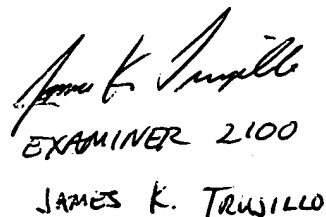 James K. Trujillo
EXAMINER 2100
JAMES K. TRUJILLO